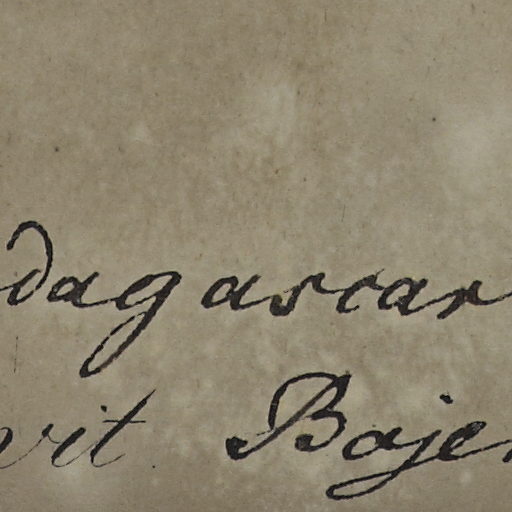 dagascar
vit. Bojer